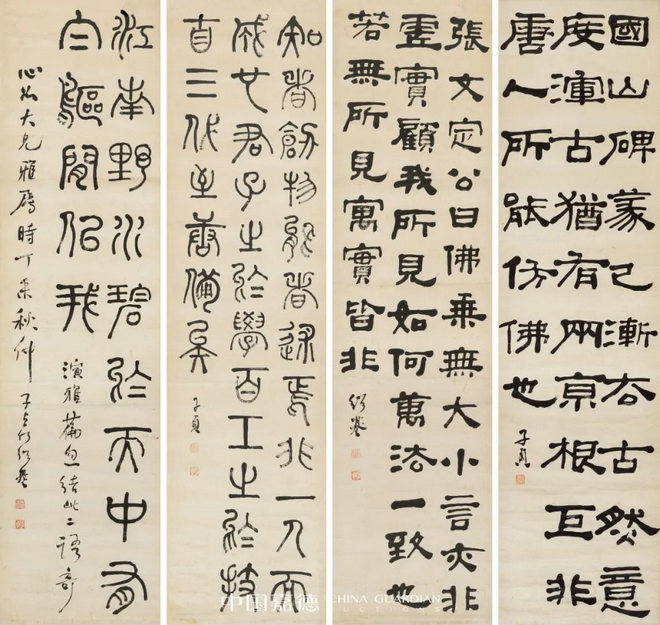 國山碑篆已漸去古然意
度渾古猶有兩京根巨非
唐人所能仿佛也
子貞
張文定公曰佛乘無大小言亦非
虛實顧我所見如何萬法一致也
若無所見寓實皆非
紹基
知者創物能者述焉非一人而
成也君子之於學百工之於技
自三代至唐備矣
子貞
江南野水碧於天中有
白鷗閒似我
演雅篇忽結此二語奇
大兄雅属時丁未秋仲子貞何紹基
中国嘉德
CHINA GUARDIAN